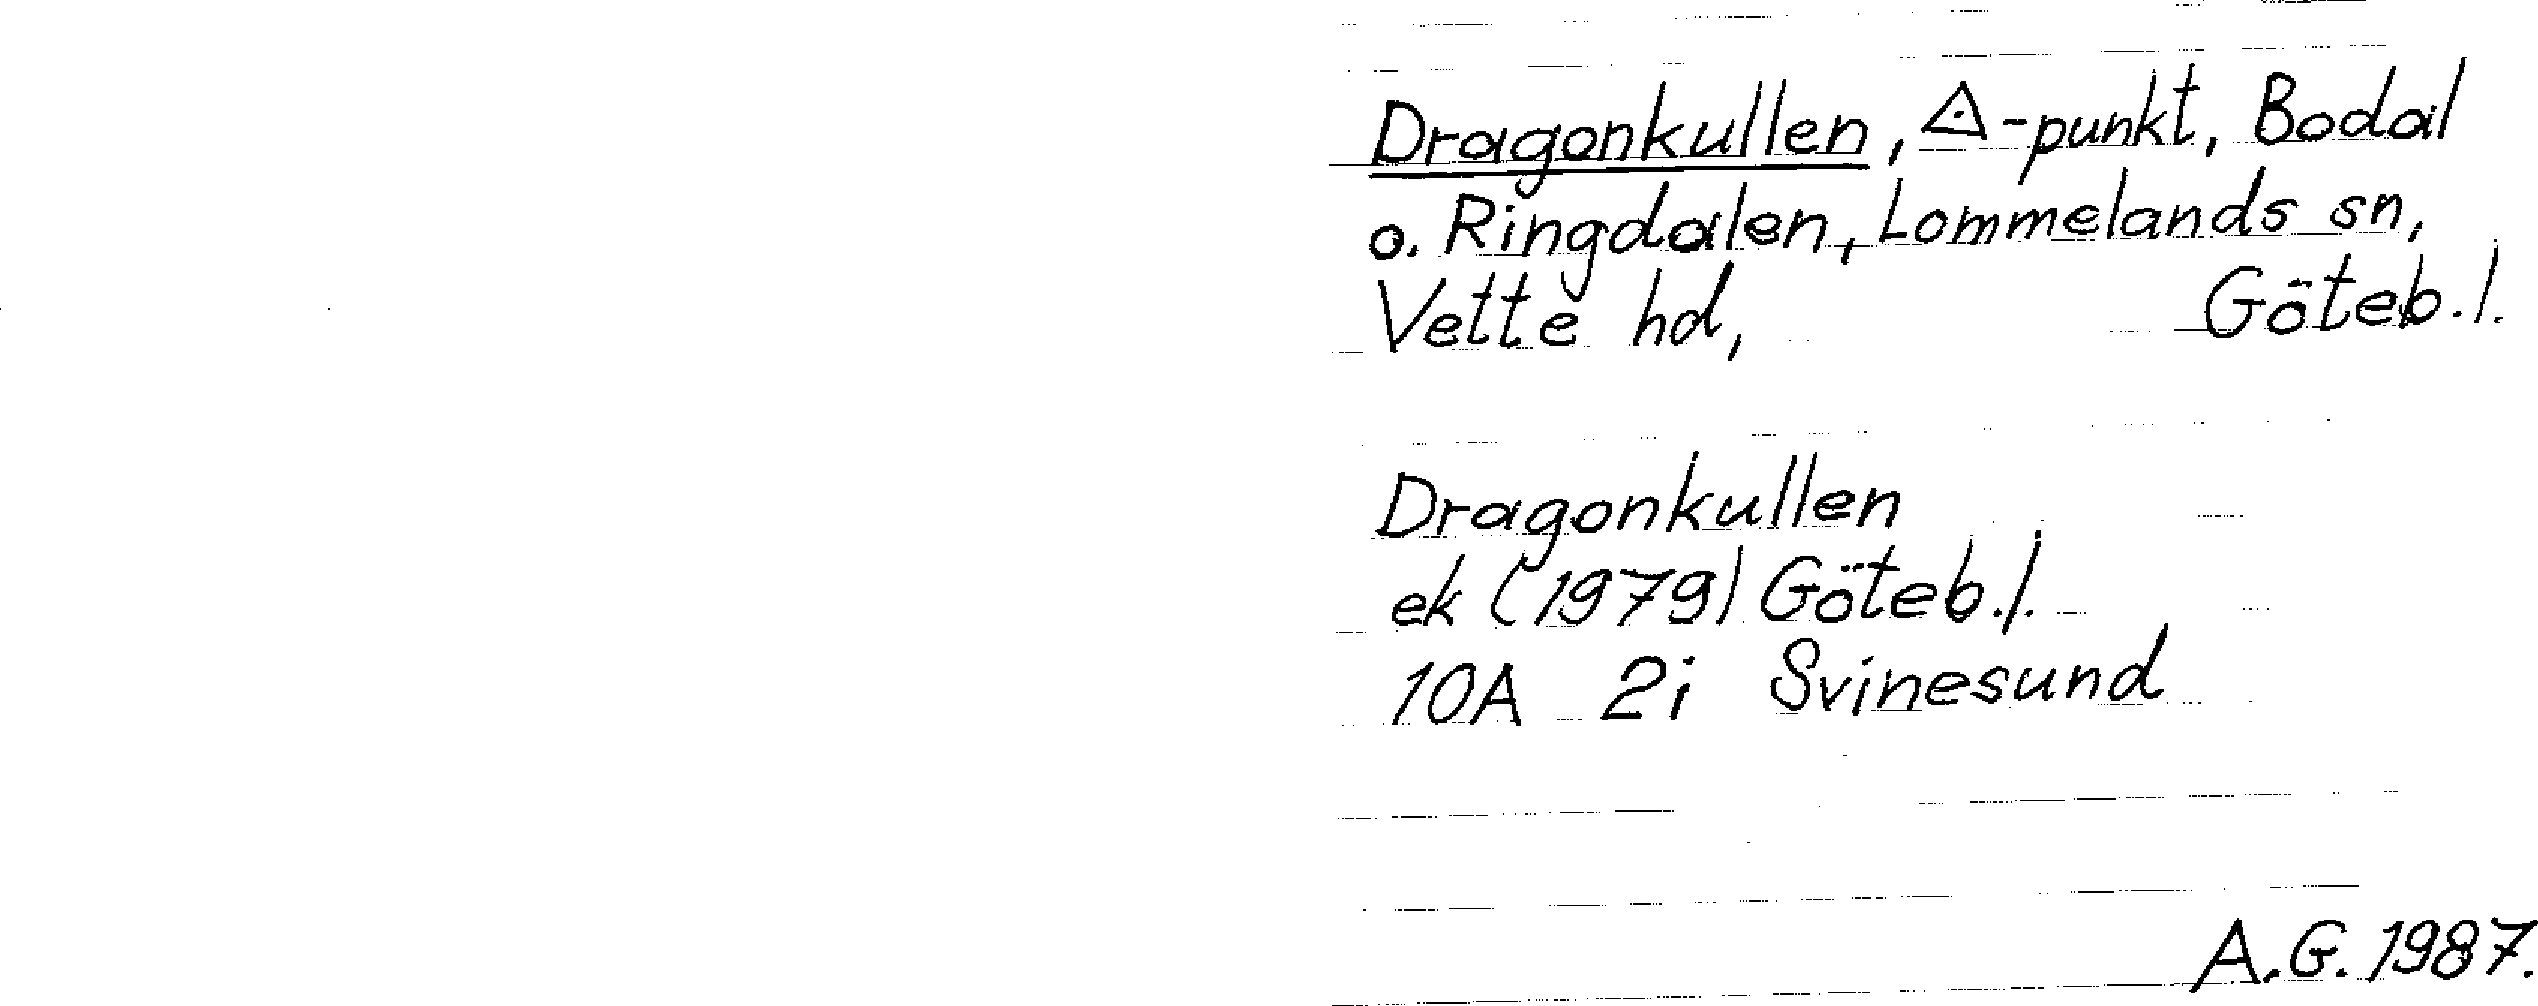 Dragonkullen, ◬-punkt, Bodal
o. Ringdalen, Lommelands sn,
Vette hd, Göteb.l.
Dragonkullen
ek (1979) Göteb.l.
10A 2i Svinesund
A.G. 1987.